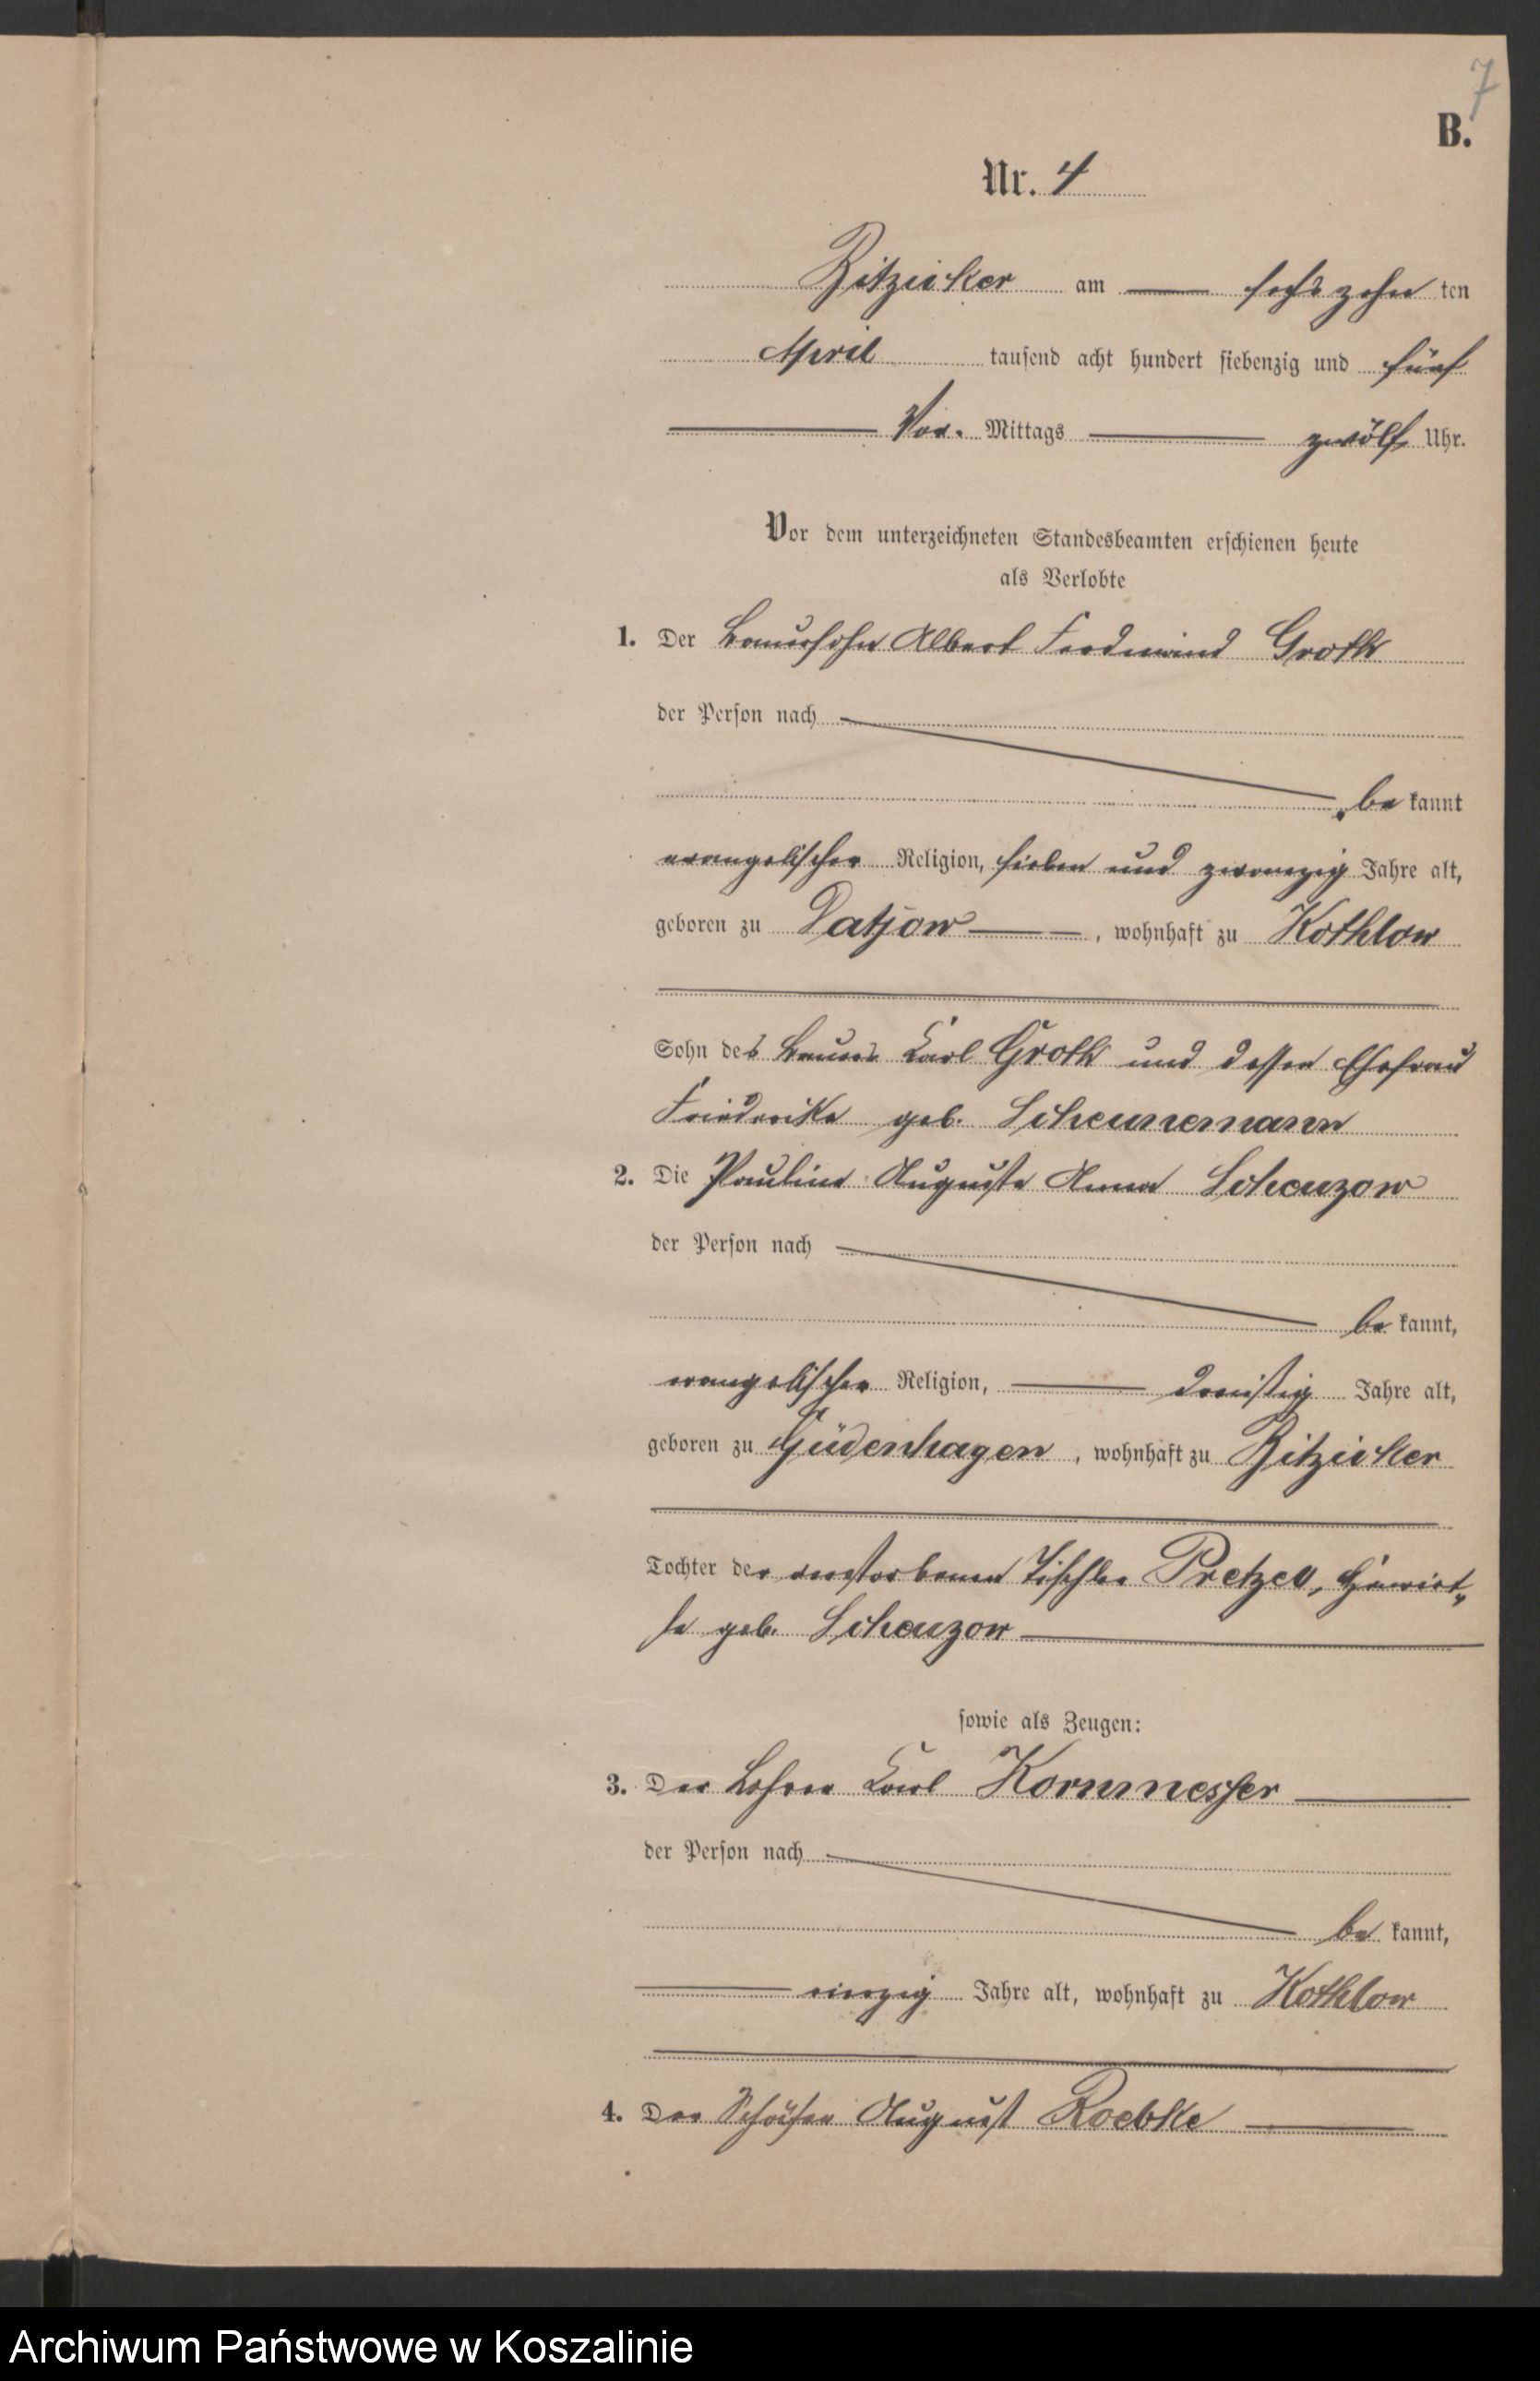 7
B.
Nr. 4
Ritzicker am sechszehn ten
April tausend acht hundert siebenzig und fünf
Vor. Mittags zwölf Uhr.
Vor dem unterzeichneten Standesbeamten erschienen heute
als Verlobte
1. Der Bauersohn Albert Ferdinand Groth
der Person nach
be kannt
evangelischer Religion, sieben und zwanzig Jahre alt,
geboren zu Datjow, wohnhaft zu Kothlow
Sohn des Bauers Carl Groth und dessen Ehefrau
Friederike geb. Scheunemann
2. Die Pauline Auguste Anna Schauzow
der Person nach
be kannt,
evangelischer Religion, dreißig Jahre alt,
geboren zu Güdenhagen, wohnhaft zu Ritzicker
Tochter der verstorbenen Tischler Pretzell,
geb. Schauzow
sowie als Zeugen:
3. Der Lehrer Carl Kornmesser
der Person nach
be kannt,
vierzig Jahre alt, wohnhaft zu Kothlow
4. Der Schäfer August Roebke
Archiwum Państwowe w Koszalinie